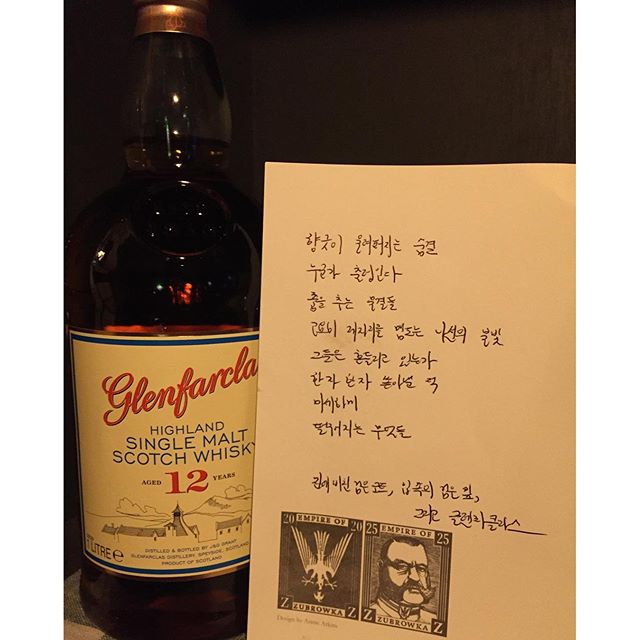 Glenfarclas
HIGHLAND
SINGLE MALT
SCOTCH WHISKY
AGED 12 YEARS
1 LITRE e
DISTILLED & BOTTLED BY J&G GRANT
GLENFARCLAS DISTILLERY, SPEYSIDE, SCOTLAND
PRODUCT OF SCOTLAND
향긋이 울려퍼지는 숨결
누군가 출렁인다
춤을 추는 물결들
고요히 맴도는 나선의 불빛
그들은 흔들리고 있는가
한자 한자 쏟아낼
떨어지는 무엇들
비친 검은 코트, 입 속의 검은 잎,
그리고 글렌파클라스
20 EMPIRE OF 20
Z ZUBROWKA Z
25 EMPIRE OF 25
Z ZUBROWKA Z
Design by Annie Atkins